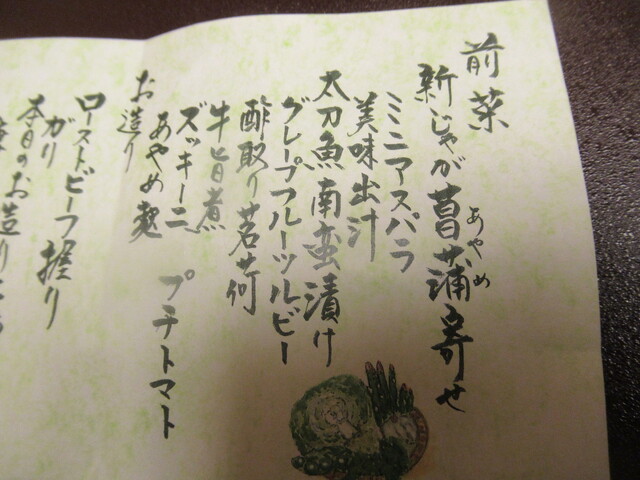 前菜
新じゃが菖蒲寄せ
あやめ
ミニアスパラ
美味出汁
太刀魚南蛮漬け
グレープフルーツルビー
酢取り茗荷
牛旨煮
ズッキーニ プチトマト
あやめ麩
お造り
本日のお造り
ガリ
ローストビーフ握り